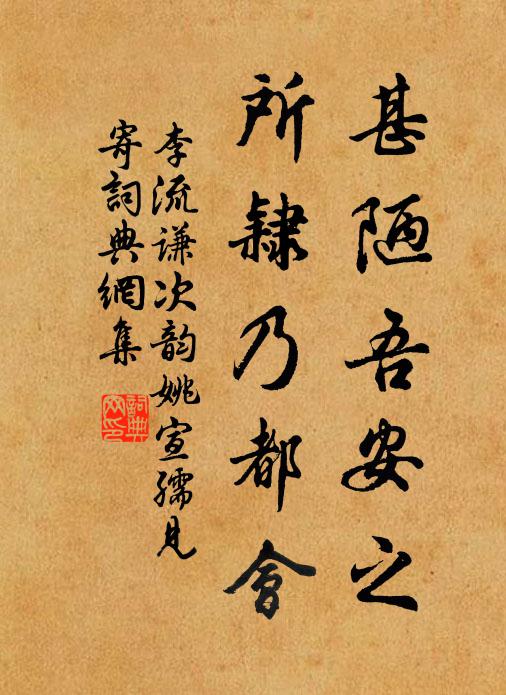 甚陋吾安之
所隸乃都會
李流谦次韵姚宣孺見
寄詞典網集
詞典
网印